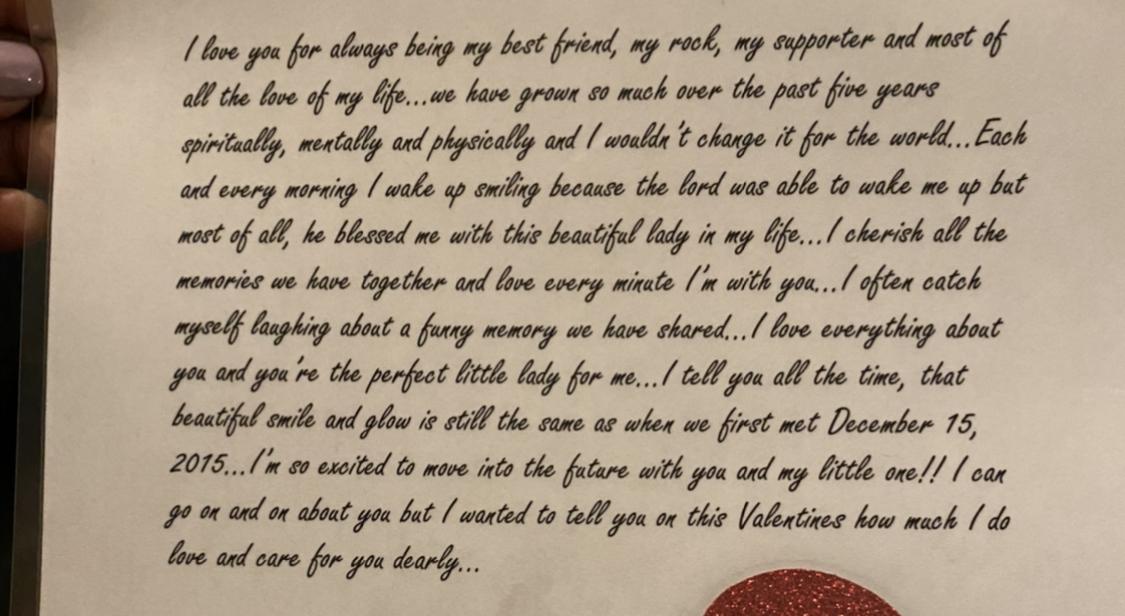 I love you for always being my best friend, my rock, my supporter and most of
all the love of my life...we have grown so much over the past five years
spiritually, mentally and physically and I wouldn't change it for the world...Each
and every morning I wake up smiling because the lord was able to wake me up but
most of all, he blessed me with this beautiful lady in my life...I cherish all the
memories we have together and love every minute I'm with you...I often catch
myself laughing about a funny memory we have shared...I love everything about
you and you're the perfect little lady for me...I tell you all the time, that
beautiful smile and glow is still the same as when we first met December 15,
2015...I'm so excited to move into the future with you and my little one!! I can
go on and on about you but I wanted to tell you on this Valentines how much I do
love and care for you dearly...